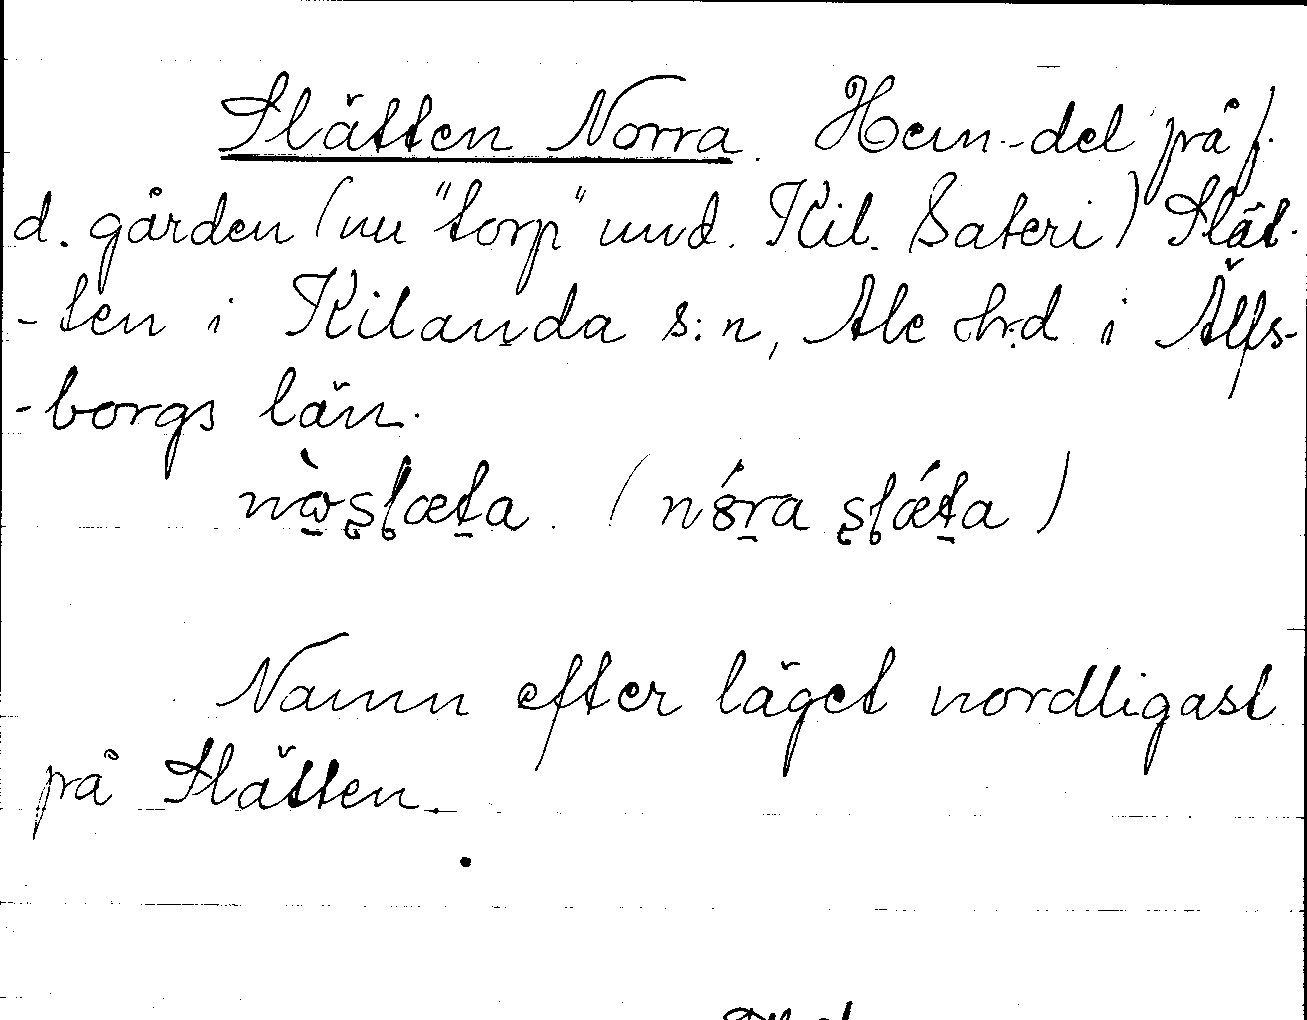 Slätten Norra. Hem.-del på f.
d. gården (nu "torp" und. Kil. Säteri) Slät-
-ten i Kilanda s:n, Ale hrd i Älfs-
-borgs län.
nàꞷ̱ʂɭæṯa. (nǿṟa ʂɭǽṯa)
Namn efter läget nordligast
på Slätten.